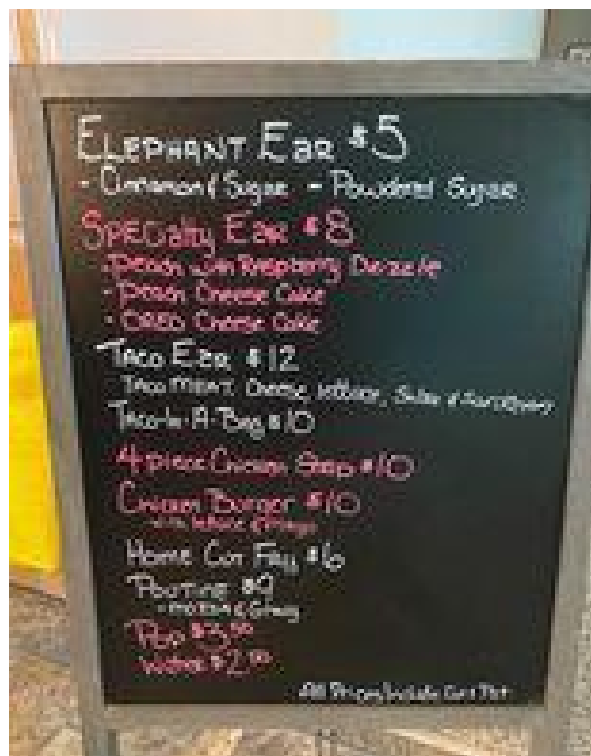 ELEPHANT EAR $5
- Cinnamon & Sugar - Powdered Sugar
SPECIALTY EAR $8
- Peach with Raspberry Drizzle
- Peach Cheese Cake
- OREO Cheese Cake
TACO EAR $12
TACO MEAT, Cheese, lettuce, Salsa & Sour Cream
Taco-In-A-Bag $10
4 piece Chicken Strip $10
Chicken Burger $10
with lettuce & Mayo
Home Cut Fry $6
POUTINE $9
Pop $3.00
Water $2.00
All Prices Include